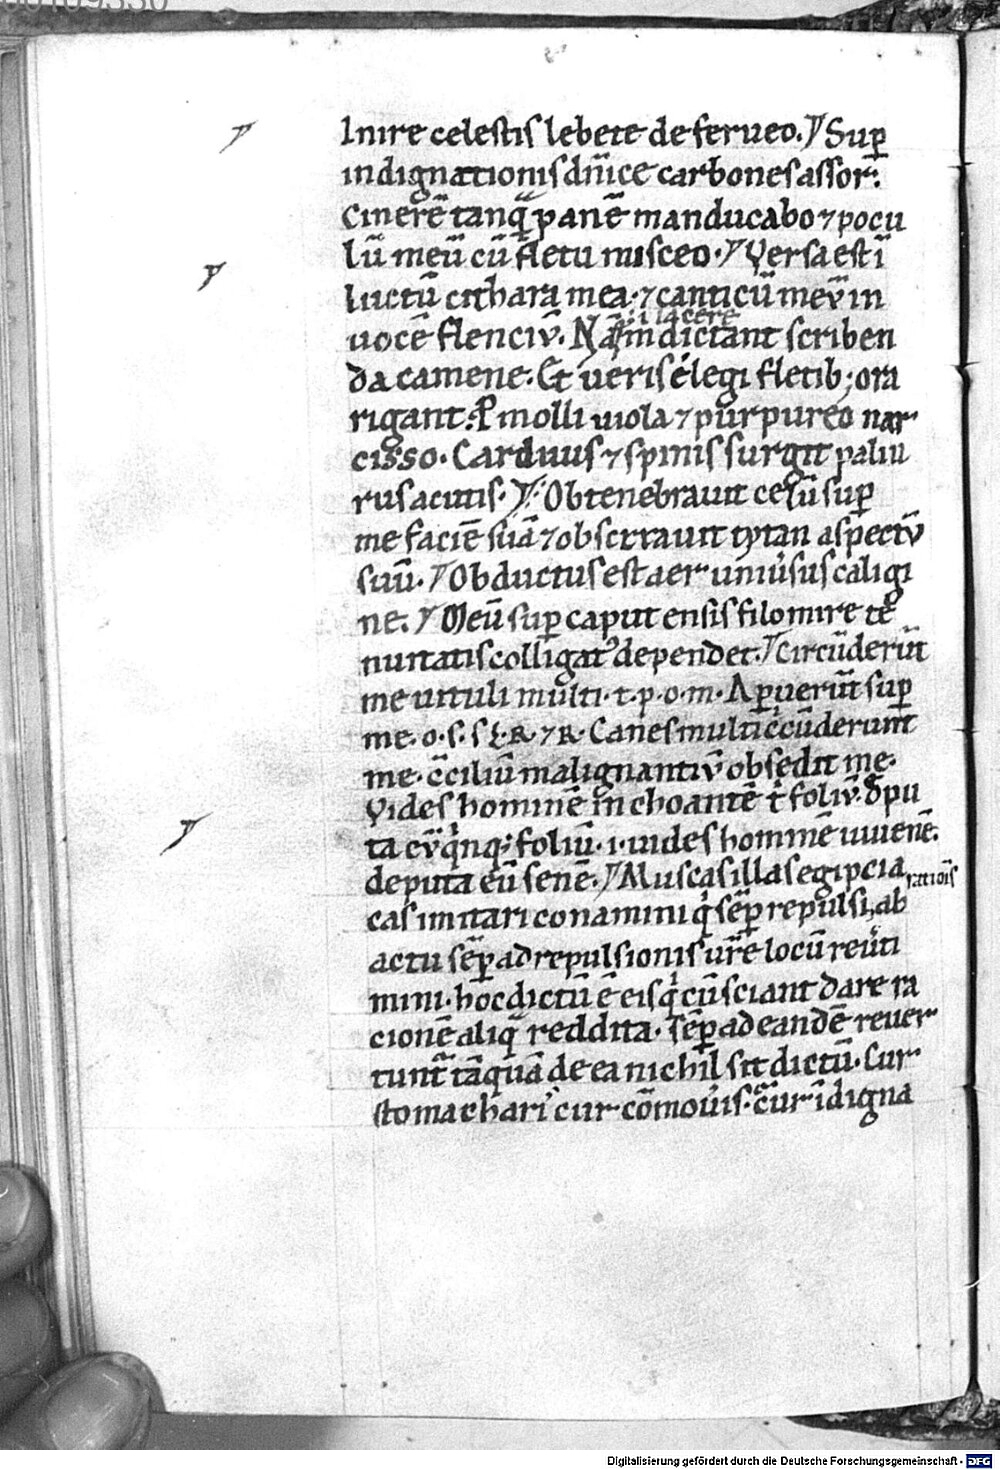 In ire celestis lebete deferueo. Ÿ Sup
indignationis dn̄ice carbones assor.
Cinerē tanq̄ panē manducabo ⁊ pocu
lū meū cū fletu misceo. Ÿ Versa est ī
luctū cithara mea. ⁊ canticū meū in
lacere
uocē flenciū. Nā m̄ dictant scriben
da camene. Et ueris elegi fletib; ora
rigant. P molli uiola ⁊ purpureo nar
cisso. Carduus ⁊ spinis surgit paliu
rus acutis. Ÿ Obtenebrauit celū sup
me faciē suā ⁊ obserrauit tytan aspectū
suū. Ÿ Obductus est aer uniūsus caligi
ne. Ÿ Meū sup caput ensis filo mire te
nuitatis colligat᷒ dependet. Ÿ Circūderūt
me uituli multi. t. p. o. m. Apuerūt sup
me. o. s. s. l. R. ⁊ R. Canes multi c̄cūderunt
me. c̄ciliū malignantiū obsedit me.
Vides hominē inchoantē foliū. dpu
ta foliū. i. uides hominē uiuenē.
deputa eū senē. Ÿ Muscas illas egipcia
rationis
cas imitari conamini q̄ sēp repulsi, ab
actu sēp ad repulsionis ur̄e locū reūti
mini. hoc dictū ē eis q̄ cū sciant dare ra
cionē aliq̄ reddita. sēp ad eandē reuer
tunt̄ tāquā de ea nichil sit dictū. Cur
stomachari cur cōmoūis. cur īdigna